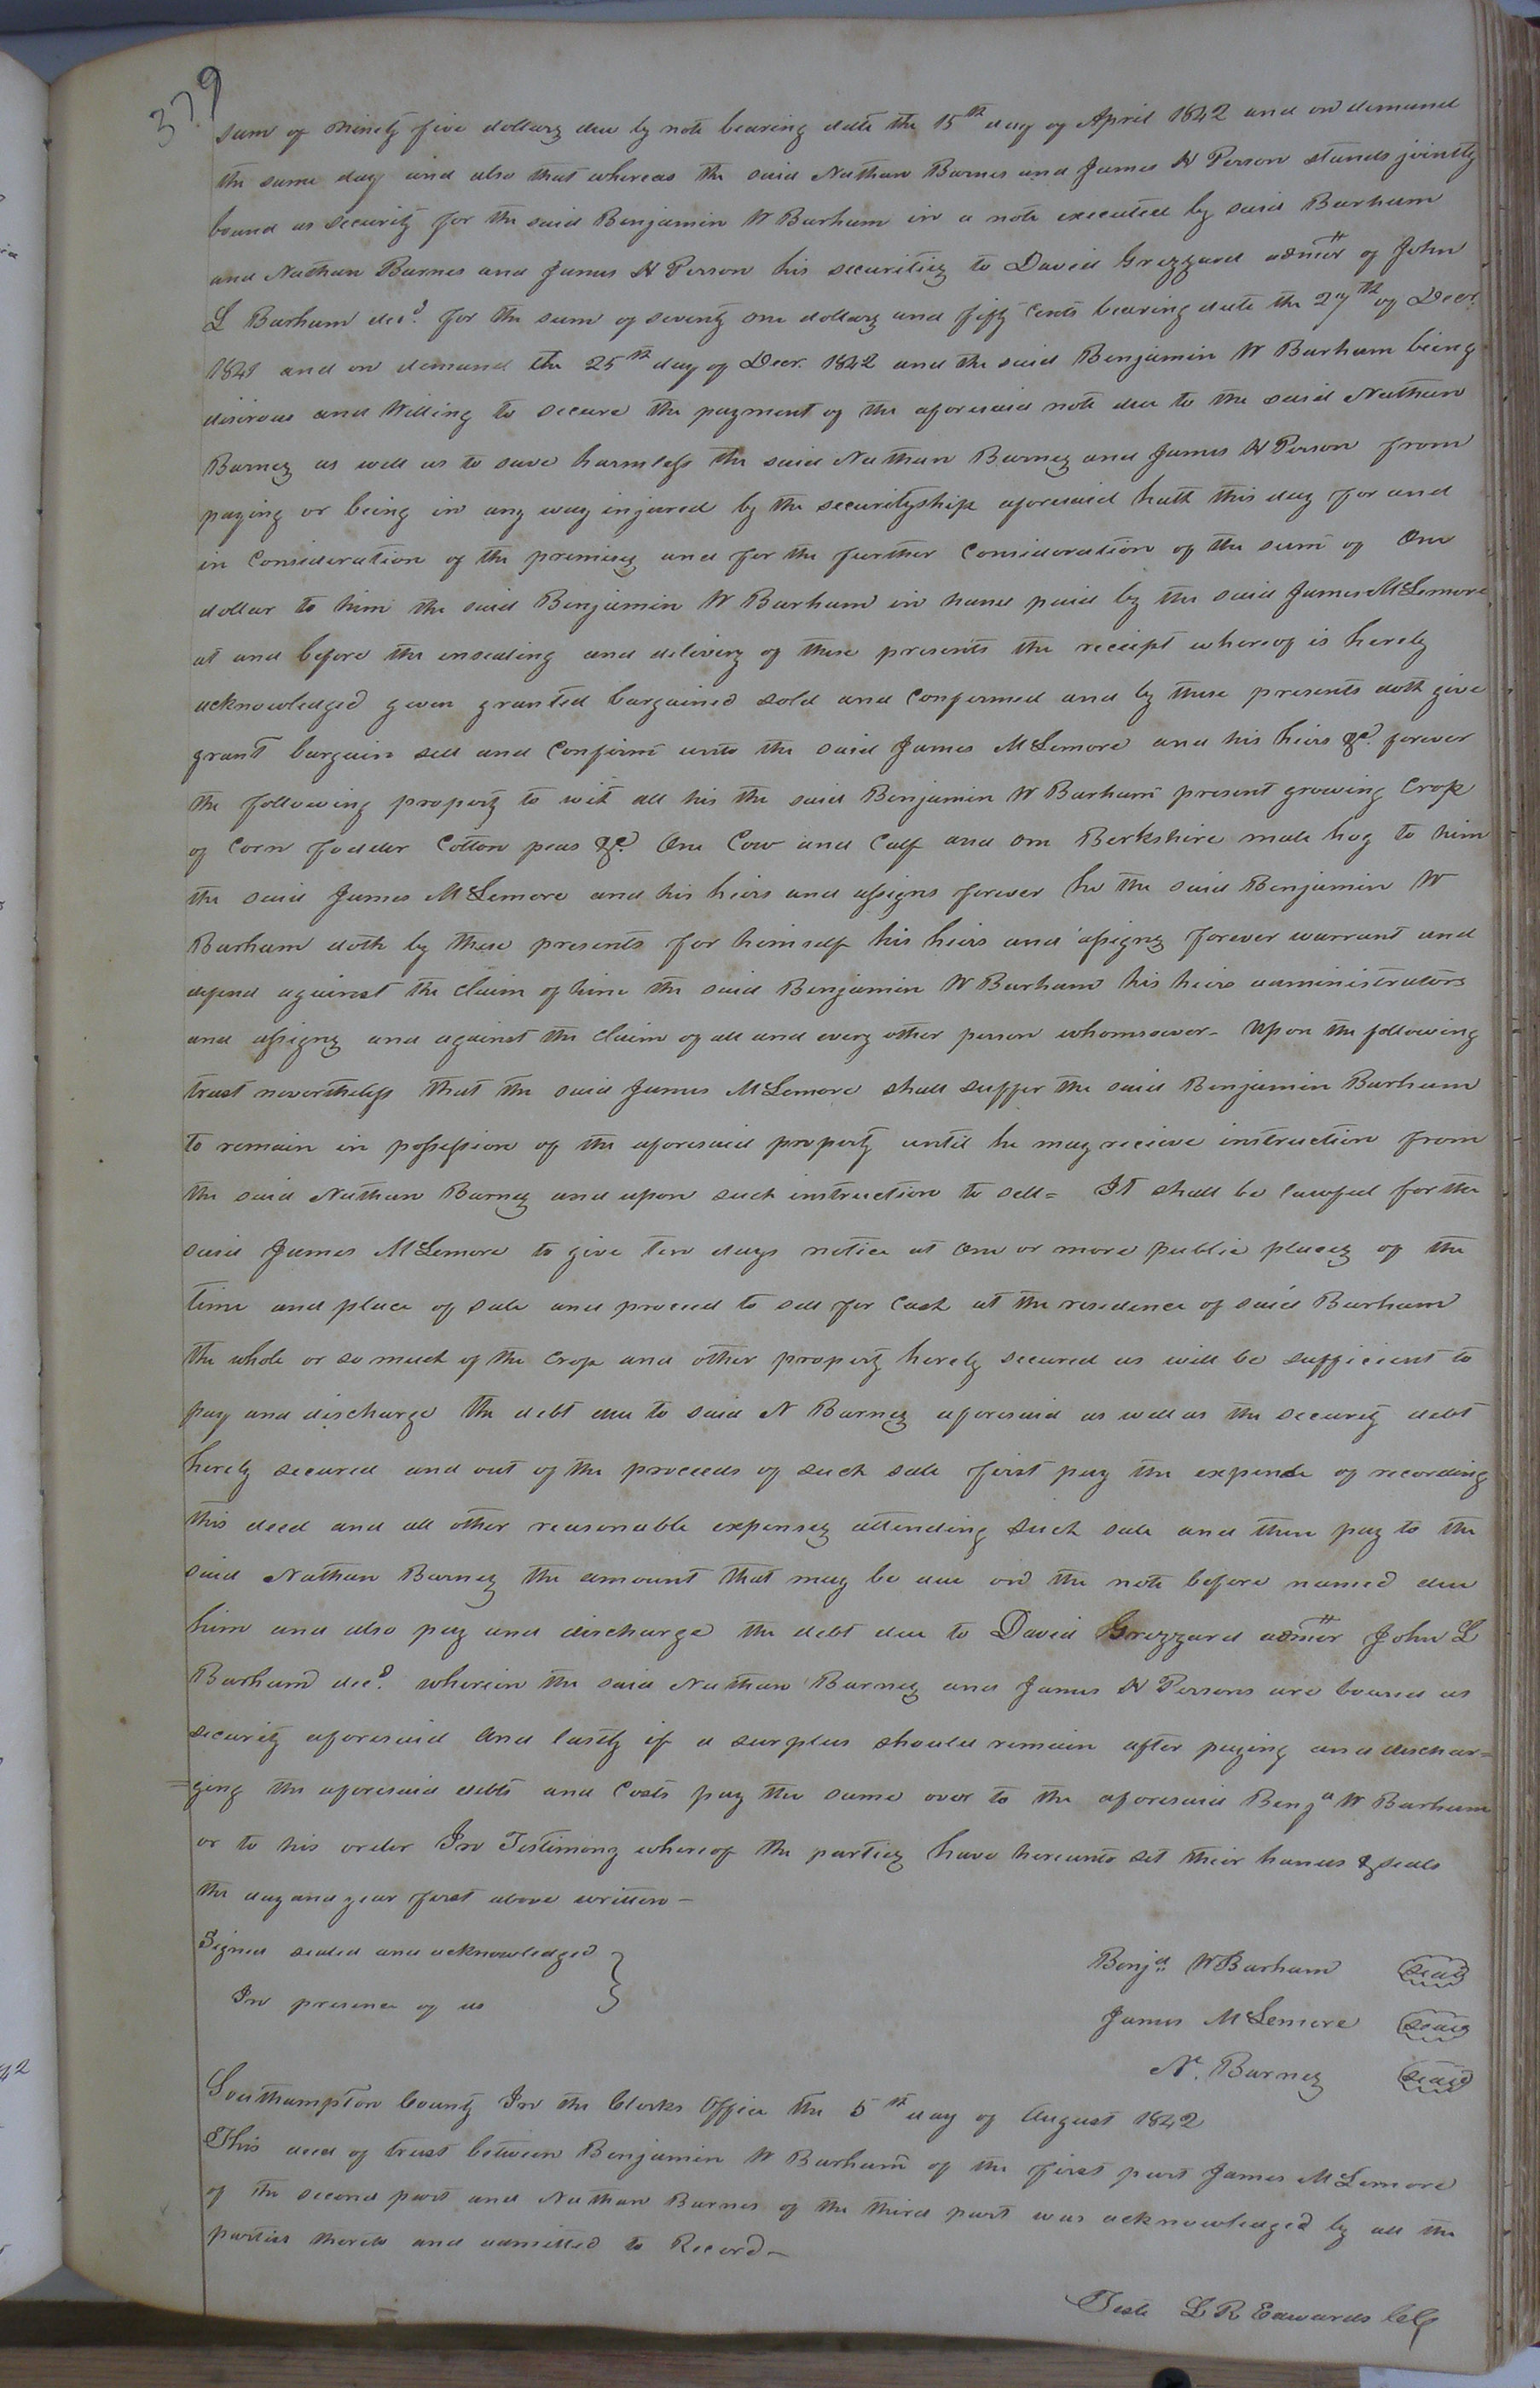 379
sum of Ninety five dollars due by note bearing date the 15th day of April 1842 and on demand
the same day and also that whereas the said Nathan Barnes and James H Person stands jointly
bound as security for the said Benjamin W Barham in a note executed by said Barham
and Nathan Barnes and James H Person his securities to David Grizzard admr of John
L Barham decd. for the sum of seventy one dollars and fifty Cents bearing date the 27th of Decr.
1841 and on demand the 25th day of Decr. 1842 and the said Benjamin W Barham being
disirous and Willing to secure the payment of the aforesaid note due to the said Nathan
Barnes as well as to save harmless the said Nathan Barnes and James H Person from
paying or being in any way injured by the securityship aforesaid hath this day for and
in Consideration of the premises and for the further Consideration of the sum of One
dollar to him the said Benjamin W Barham in hand paid by the said James McLemore
at and before the ensealing and delivery of these presents the reciept whereof is hereby
acknowledged given granted bargained sold and Confirmed and by these presents doth give
grant bargain sell and Confirm unto the said James McLemore and his heirs &c. forever
the following property to wit all his the said Benjamin W Barham present growing Crop
of Corn fodder Cotton peas &c. One Cow and Calf and one Berkshire male hog to him
the said James McLemore and his heirs and assigns forever he the said Benjamin W
Barham doth by these presents for himself his heirs and assigns forever warrant and
defend against the Claim of him the said Benjamin W Barham his heirs administrators
and assigns and against the Claim of all and every other person whomsoever - Upon the following
trust nevertheless that the said James McLemore shall suffer the said Benjamin Barham
to remain in possession of the aforesaid property until he may recieve instruction from
the said Nathan Barnes and upon such instruction to sell = It shall be lawful for the
said James McLemore to give ten days notice at one or more public places of the
time and place of sale and proceed to sell for Cash at the residence of said Barham
the whole or so much of the Crop and other property hereby secured as will be sufficient to
pay and discharge the debt due to said N Barnes aforesaid as well as the security debt
hereby secured and out of the proceeds of such sale first pay the expense of recording
this deed and all other reasonable expenses attending such sale and then pay to the
said Nathan Barnes the amount that may be due on the note before named due
him and also pay and discharge the debt due to David Grizzard admr John L
Barham decd. wherein the said Nathan Barnes and James H Persons are bound as
security aforesaid And lastly if a surplus should remain after paying and dischar=
=ging the aforesaid debts and Costs pay the same over to the aforesaid Benja W Barham
or to his order In Testimony whereof the parties have hereunto set their hands & seals
the day and year first above written -
Signed sealed and acknowledged
In presence of us
Benja. W Barham seal
James McLemore seal
N. Barnes seal
Southampton County In the Clerks Office the 5th day of August 1842
This deed of trust between Benjamin W Barham of the first part James McLemore
of the second part and Nathan Barnes of the third part was acknowledged by all the
parties thereto and admitted to Record -
Teste L R Edwards Clk